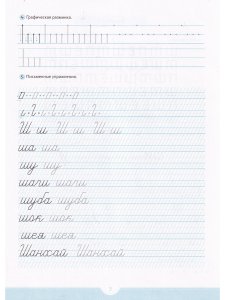 Графическая разминка.
Письменные упражнения.
Ш ш Ш ш Ш ш
ша ша
шу шу
шаги шаги
шуба шуба
шок шок
шея шея
Шанхай Шанхай